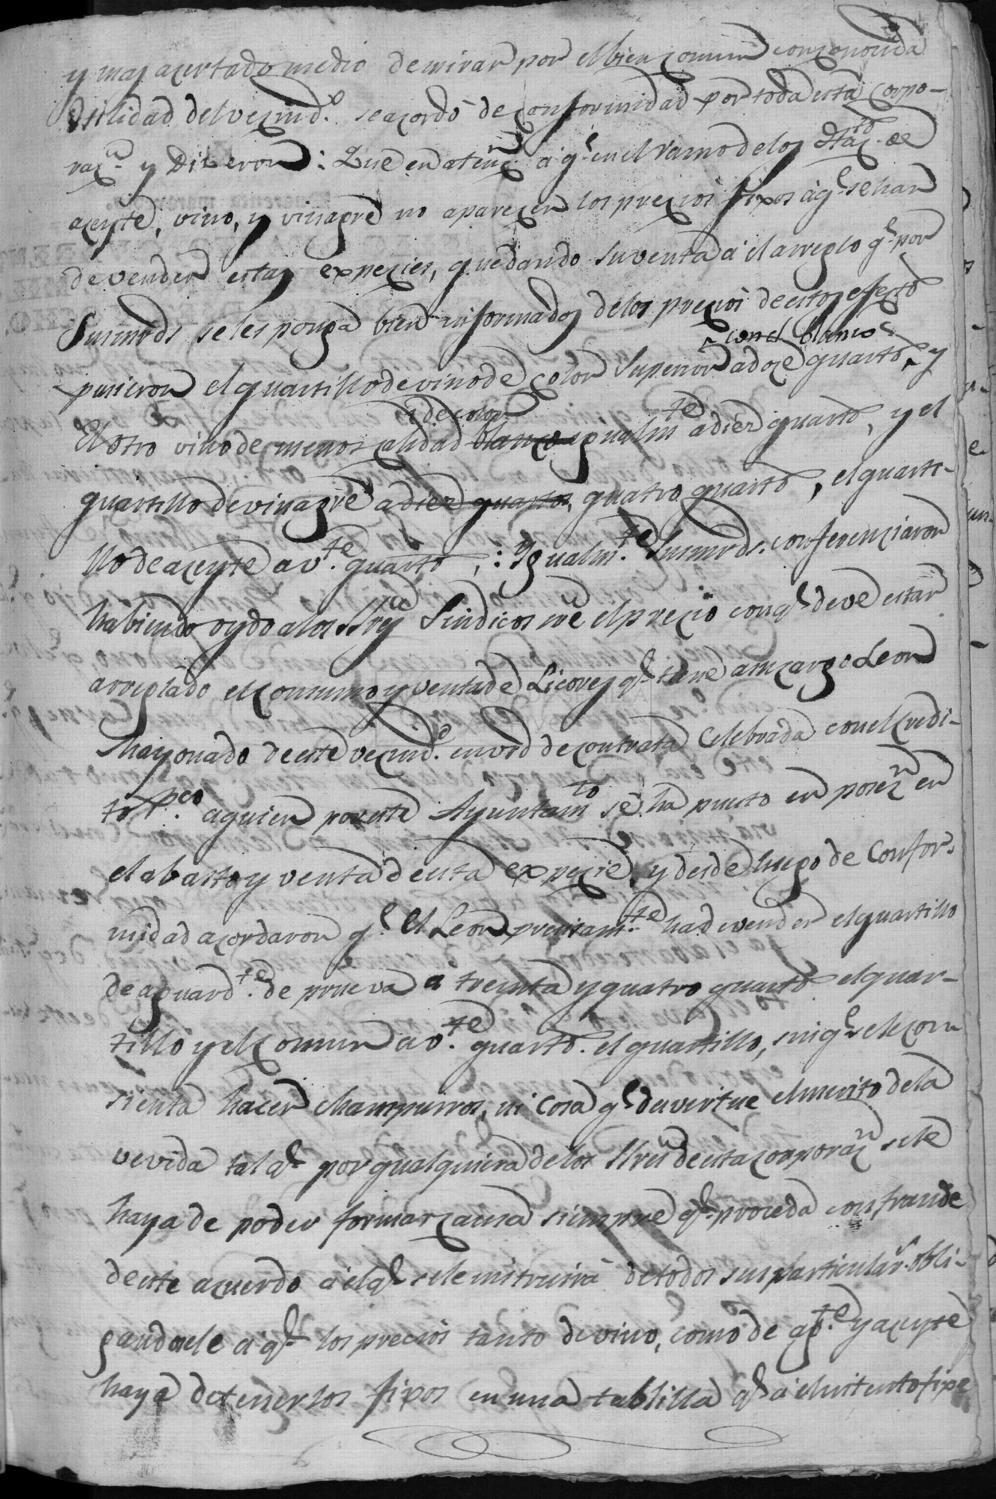 y mas acertado medio de mirar por el bien comun con conocida
utilidad del vecind.º se acordó de conformidad por toda esta corpo-
raz.n y Dixeron: Que en atenz.n a q.e en el ramo de los de
azeyte, vino, y vinagre no aparezen los prezios fixos a q.e se han
de vender estas expezies, quedando su venta a el arreglo q.e por
Sus mrds se les ponga bien informados de los prezios de estos efectos
con el blanco
pusieron el quartillo de vino de color superior a doze quartos, y
i de color
el otro vino de menor calidad blanco igualm.te a diez quartos, y el
quartillo de vinagre a diez quartos, quatro quartos, el quarti-
llo de azeyte a v.te quartos,: Igualm.te Sus mrds. conferenziaron
habiendo oydo a los SSres Sindicos sre el prezio con q.e deve estar
arreglado el consumo y venta de Licores q.e tiene a su cargo Leon
Mayonado de este vecind.º en vrd de contrata celebrada con el credi-
to p.co a quien por este Ayuntam.to se ha puesto en posez.n en
el abasto y venta de esta expezie, y desde luego de confor-
midad acordaron q.e el Leon precisam.te ha de vender el quartillo
de aguard.te de prueva a treinta y quatro quartos el quar-
tillo y el comun a v.te quartos. el quartillo, sin q.e se le con
sienta hacer champurros, ni cosa q.e desvirtue el merito de la
vevida tal q.e por qualquiera de los SSres de esta corporaz.n se le
haya de poder formar causa siempre q.e proceda con fraude
de este acuerdo a el q.e se le instruirá de todos sus particulars. obli-
gandosele a q.e los precios tanto de vino, como de ag.te y azeyte
haya de tenerlos fixos en una tablilla q.e a el intento fixe